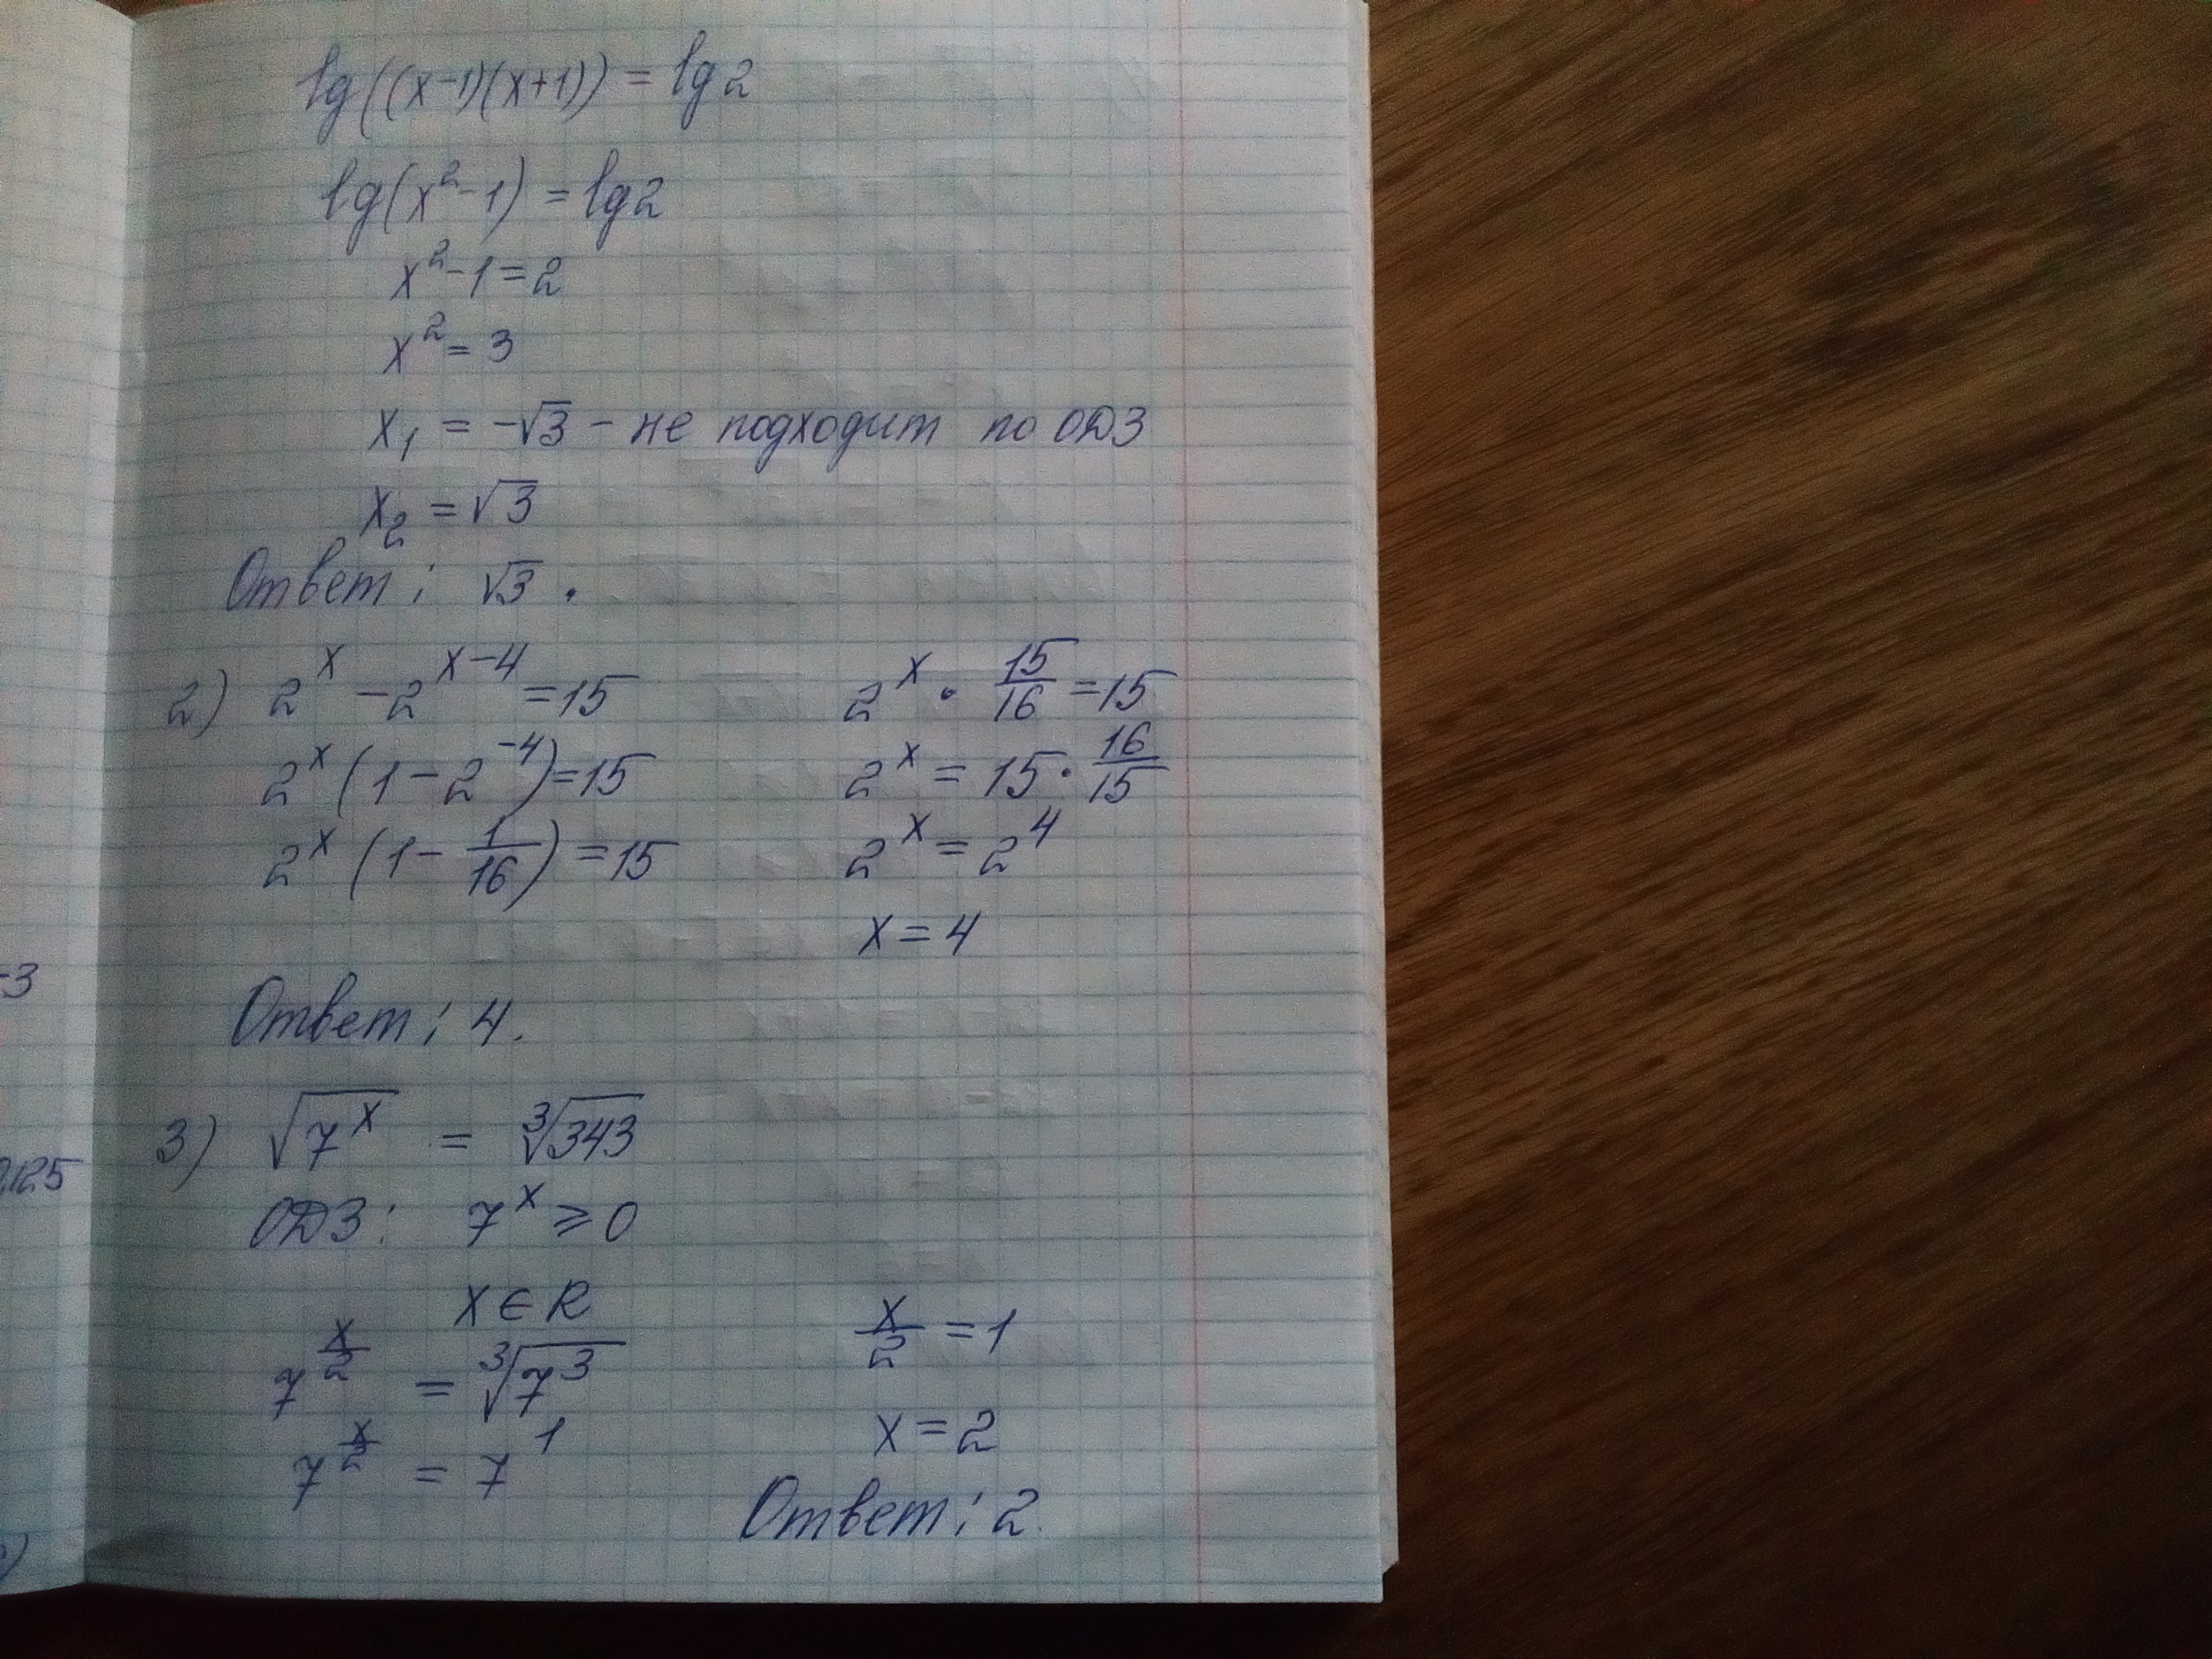 lg((x-1)(x+1)) = lg2
lg(x²-1) = lg2
x²-1=2
x²=3
x₁ = -√3 - не подходит по ОДЗ
x₂ = √3
Ответ: √3.
2) 2^x - 2^(x-4) = 15
2^x (1 - 2^(-4)) = 15
2^x (1 - 1/16) = 15
2^x · 15/16 = 15
2^x = 15 · 16/15
2^x = 2^4
x = 4
Ответ: 4.
3) √(7^x) = ³√343
ОДЗ: 7^x ≥ 0
x ∈ R
7^(x/2) = ³√(7³)
7^(x/2) = 7^1
x/2 = 1
x = 2
Ответ: 2.
-3